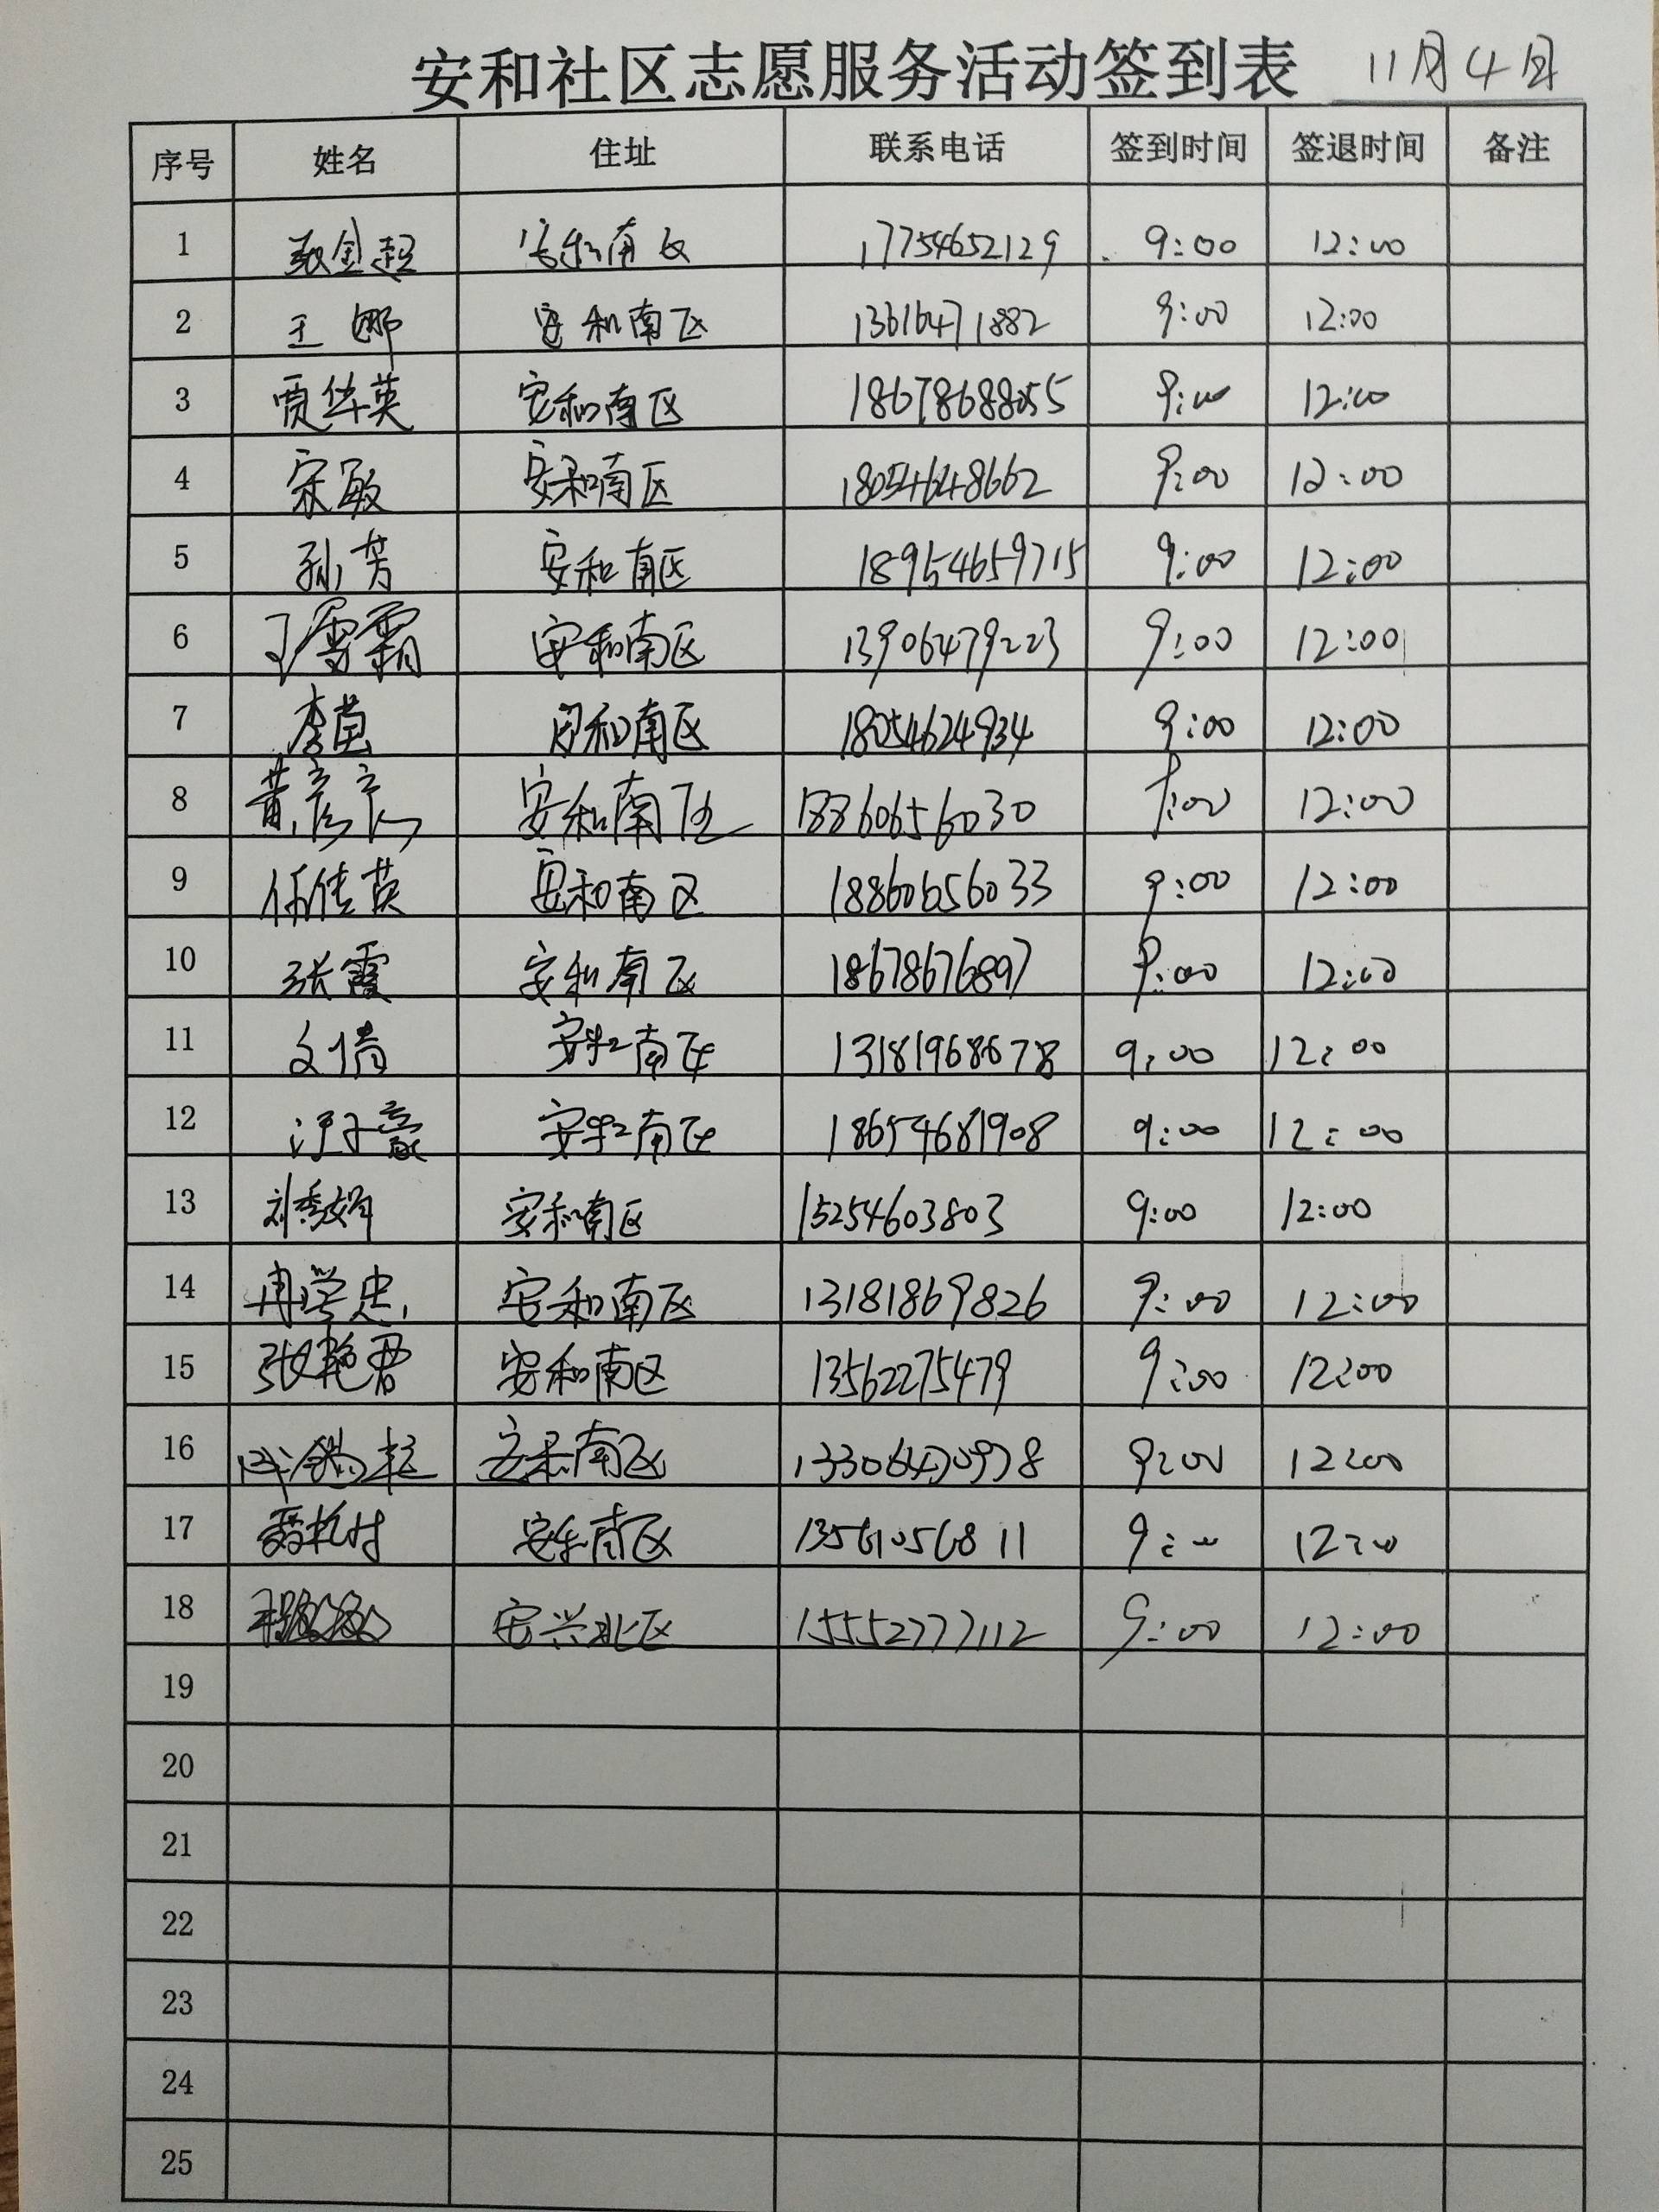 安和社区志愿服务活动签到表 11月4日
序号 姓名 住址 联系电话 签到时间 签退时间 备注
1 安和南区 17754652129 9:00 12:00
2 王娜 安和南区 13616471882 9:00 12:00
3 贾华英 安和南区 18678688055 9:00 12:00
4 宋敏 安和南区 18054648662 9:00 12:00
5 孙芳 安和南区 18954659715 9:00 12:00
6 安和南区 13906479223 9:00 12:00
7 安和南区 18054624934 9:00 12:00
8 黄彦彦 安和南区 18860656030 9:00 12:00
9 任佳英 安和南区 18860656033 9:00 12:00
10 张霞 安和南区 18678676897 9:00 12:00
11 文倩 安和南区 13181968678 9:00 12:00
12 安和南区 18654681908 9:00 12:00
13 刘秀娟 安和南区 15254603803 9:00 12:00
14 冉学忠 安和南区 13181869826 9:00 12:00
15 张艳君 安和南区 13562275479 9:00 12:00
16 安和南区 13306470978 9:00 12:00
17 安和南区 13561056811 9:00 12:00
18 安兴北区 15552777112 9:00 12:00
19
20
21
22
23
24
25